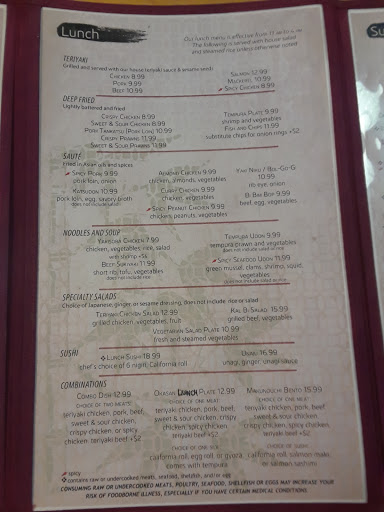 Lunch
Our lunch menu is effective from 11 am to 4 pm
The following is served with house salad
and steamed rice unless otherwise noted
TERIYAKI
Grilled and served with our house teriyaki sauce & sesame seeds
CHICKEN 8.99
PORK 9.99
BEEF 10.99
SALMON 12.99
MACKEREL 10.99
SPICY CHICKEN 8.99
DEEP FRIED
Lightly battered and fried
CRISPY CHICKEN 8.99
SWEET & SOUR CHICKEN 8.99
PORK TANKATSU (PORK LOIN) 10.99
CRISPY PRAWNS 11.99
SWEET & SOUR PRAWNS 11.99
TEMPURA PLATE 9.90
shrimp and vegetables
FISH AND CHIPS 11.99
substitute chips for onion rings +$2
SAUTÉ
Fried in Asian oils and spices
SPICY PORK 9.99
pork loin, onion
KATSUDON 10.99
pork loin, egg, savory broth
does not include salad
ALMOND CHICKEN 9.99
chicken, almonds, vegetables
CURRY CHICKEN 9.99
chicken, vegetables
SPICY PEANUT CHICKEN 9.99
chicken, peanuts, vegetables
YAKI NIKU / BUL-GO-GI
10.99
rib eye, onion
BI BIM BOP 9.99
beef, egg, vegetables
NOODLES AND SOUP
YAKISOBA CHICKEN 7.99
chicken, vegetables, rice, salad
with shrimp +$4
BEEF 11.99
short rib, tofu, vegetables
does not include rice
TEMPURA UDON 9.99
tempura prawn and vegetables
does not include salad or rice
SPICY SEAFOOD UDON 11.99
green mussel, clams, shrimp, squid,
vegetables
does not include salad or rice
SPECIALTY SALADS
Choice of Japanese, ginger or sesame dressing, does not include rice or salad
TERIYAKI CHICKEN SALAD 12.99
grilled chicken, vegetables, fruit
KAL BI SALAD 15.99
grilled beef, vegetables
VEGETARIAN SALAD PLATE 10.99
fresh and steamed vegetables
SUSHI
LUNCH SUSHI 18.99
chef's choice of 6 nigiri, California roll
UNAJU 16.99
unagi, ginger, unagi sauce
COMBINATIONS
COMBO DISH 12.99
CHOICE OF TWO MEATS:
teriyaki chicken, pork, beef,
sweet & sour chicken,
crispy chicken, or spicy
chicken. teriyaki beef +$2
LUNCH PLATE 12.99
CHOICE OF ONE MEAT:
teriyaki chicken, pork, beef,
sweet & sour chicken, crispy
chicken, spicy chicken
teriyaki beef +$2
CHOICE OF ONE:
california roll, egg roll, or gyoza
comes with tempura
MAKUNOUCHI BENTO 15.99
CHOICE OF ONE MEAT:
teriyaki chicken, pork, beef
sweet & sour chicken
crispy chicken, spicy chicken
teriyaki beef +$2
CHOICE OF SUSHI:
california roll, salmon maki
or salmon sashimi
spicy
contains raw or undercooked meats, seafood, shellfish, and/or egg
CONSUMING RAW OR UNDERCOOKED MEATS, POULTRY, SEAFOOD, SHELLFISH OR EGGS MAY INCREASE YOUR
RISK OF FOODBORNE ILLNESS, ESPECIALLY IF YOU HAVE CERTAIN MEDICAL CONDITIONS
Su